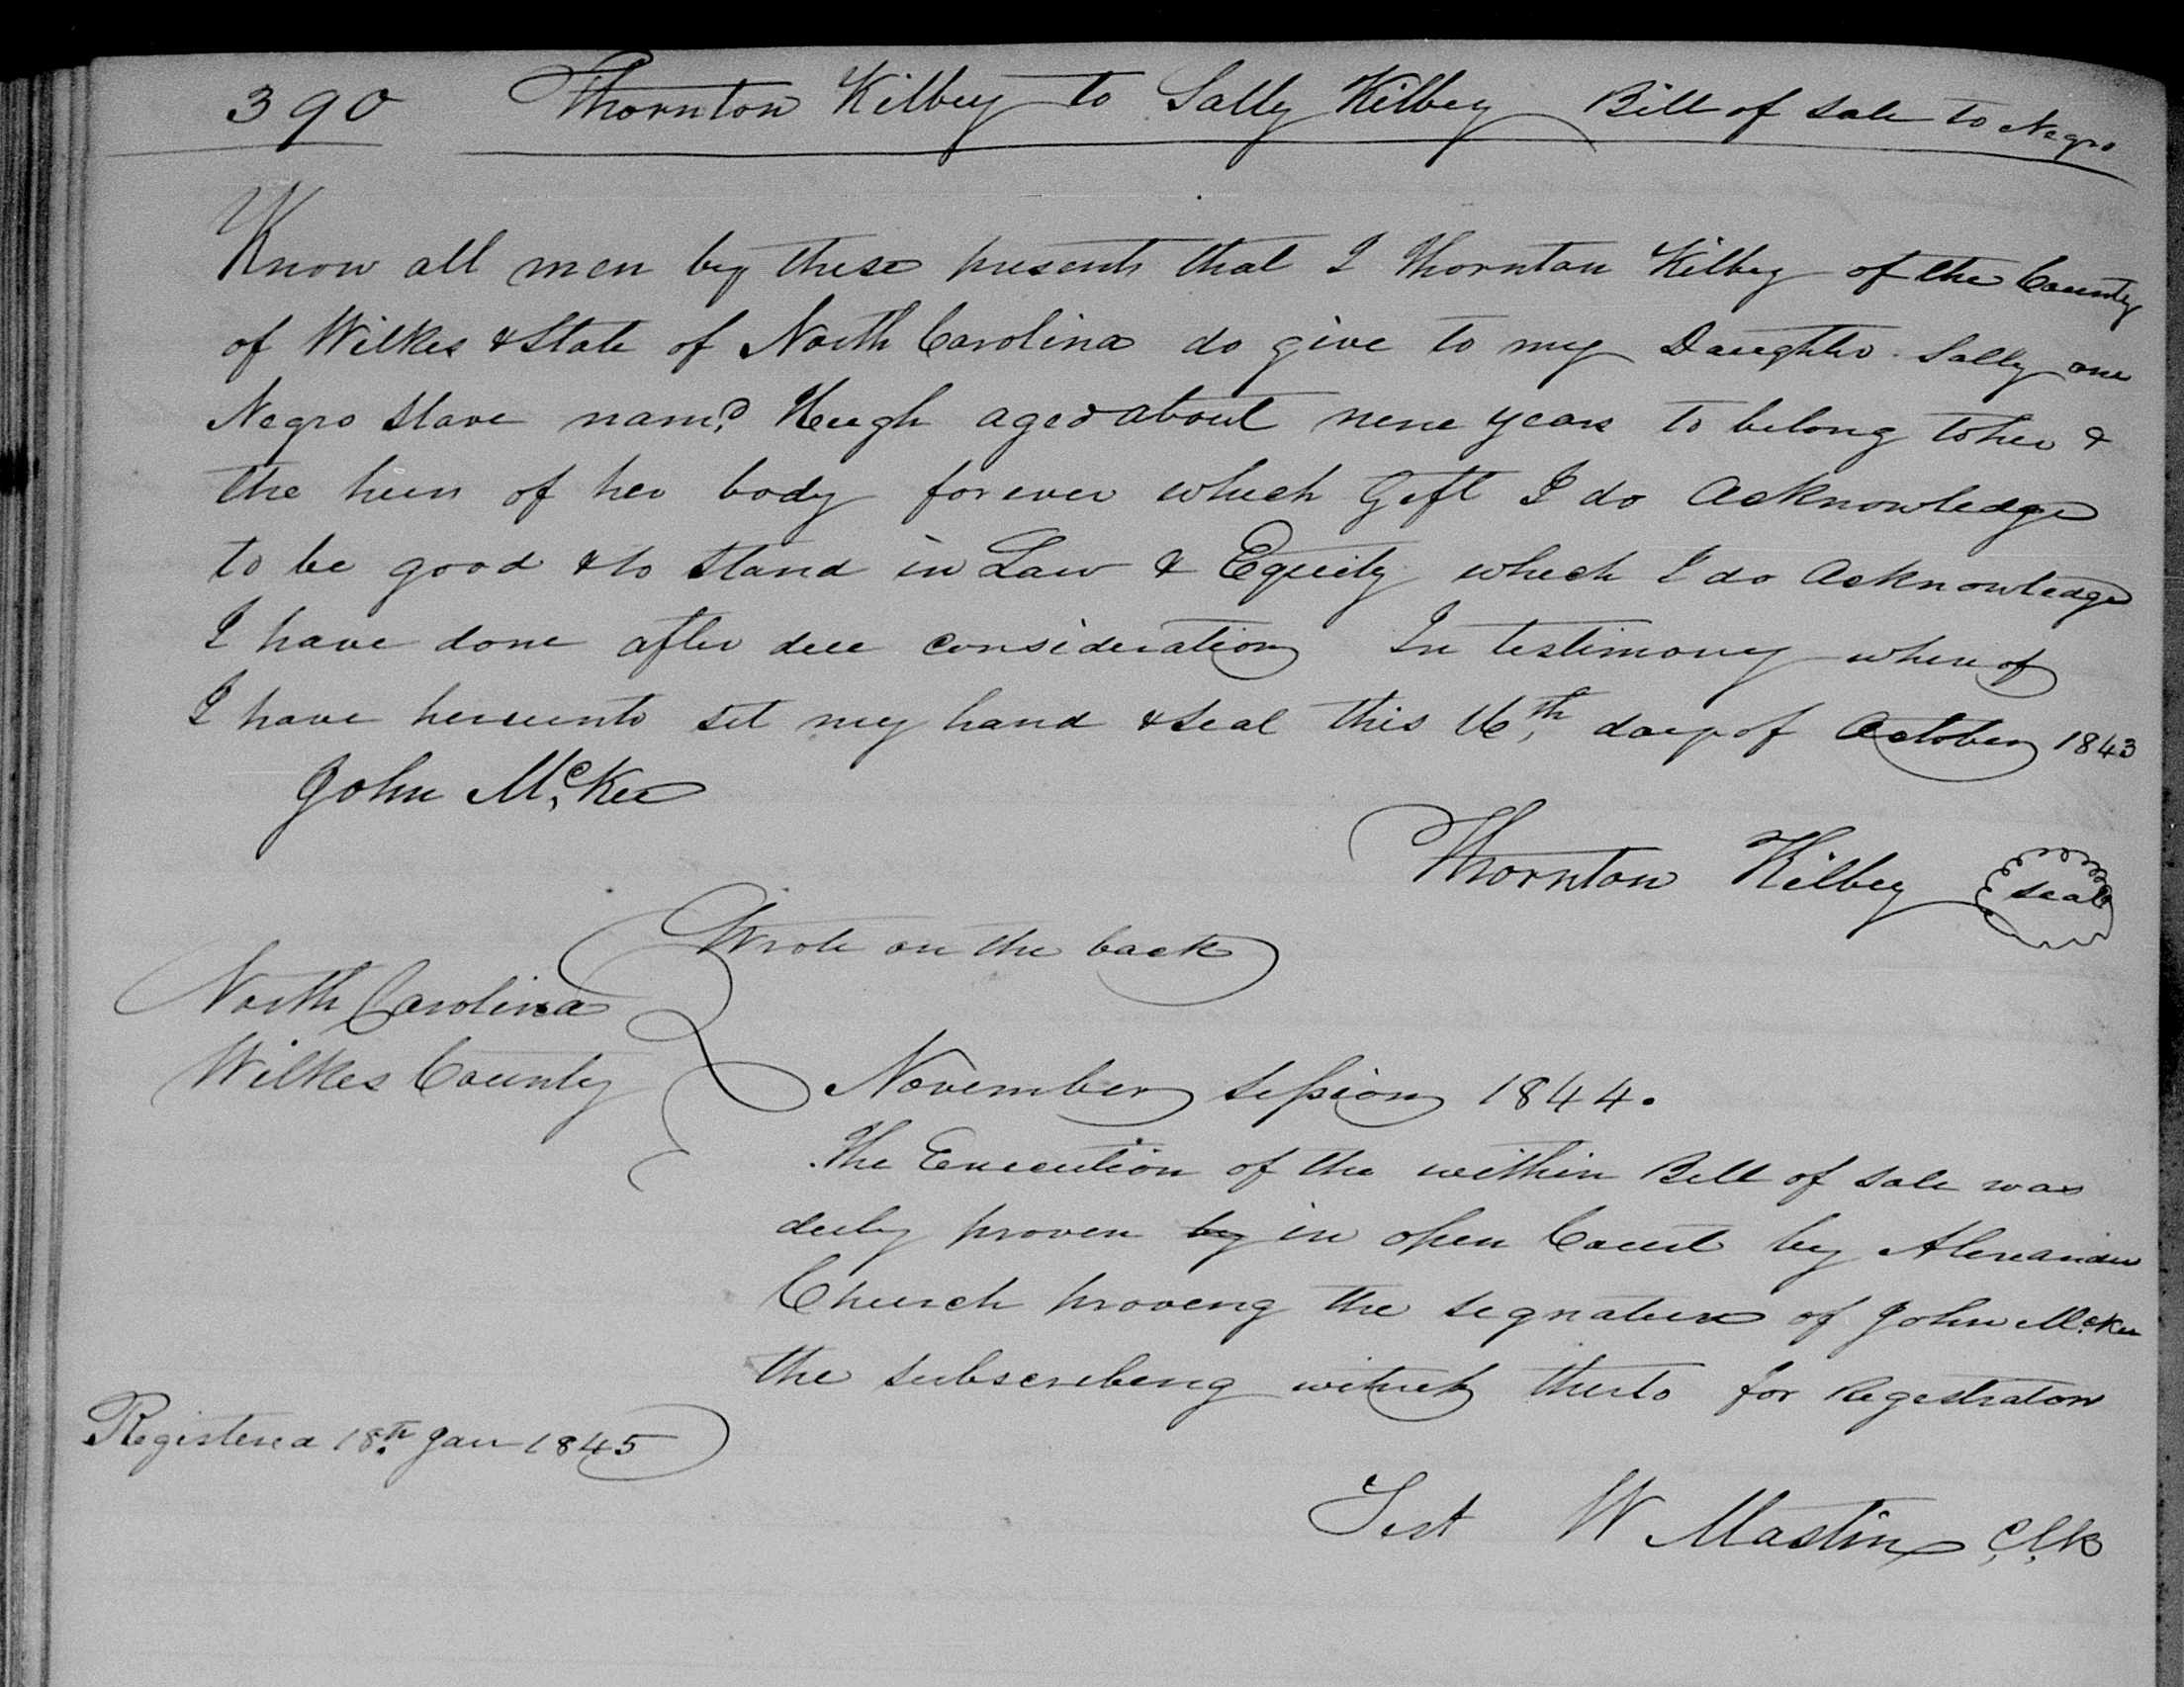 390 Thornton Kilbey to Sally Kilbey Bill of Sale to Negro
Know all men by these presents that I Thornton Kilbey of the County
of Wilkes & State of North Carolina do give to my Daughter Sally one
Negro Slave namd. Hugh aged about nine years to belong to her &
the heirs of her body forever which Gift I do Acknowledge
to be good & to stand in Law & Equity which I do Acknowledge
I have done after due consideration In testimony whereof
I have hereunto set my hand & seal this 16th, day of October 1843
John McKee
Thornton Kilbey seal
Wrote on the back
North Carolina
Wilkes County
November Session 1844.
The Execution of the within Bill of sale was
duly proven by in open Court by Alexander
Church proving the signature of John McKee
the subscribing witness thereto for Registration
Registered 18th. Jan 1845
Test W Mastin Clk